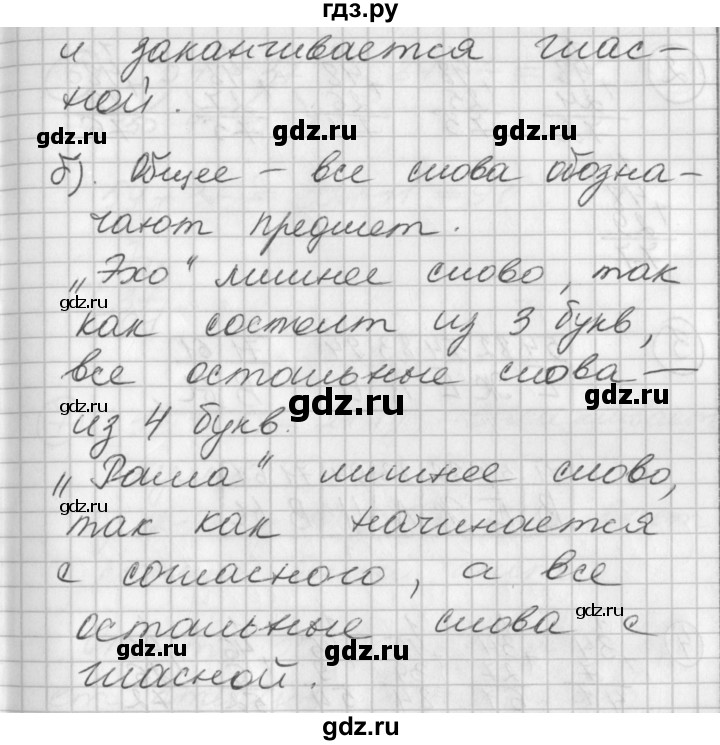 гдз.ру
и заканчивается глас-
ной.
gdz.ru
gdz.ru
gdz.ru
б). Общее – все слова обозна-
чают предмет.
„Эхо“ лишнее слово, так
gdz.ru
как состоит из 3 букв,
все остальные слова —
gdz.ru
gdz.ru
gdz.ru
из 4 букв.
„Роща“ лишнее слово,
gdz.ru
так как начинается
с согласного, а все
gdz.ru
остальные слова с
gdz.ru
gdz.ru
гласной.
gdz.ru